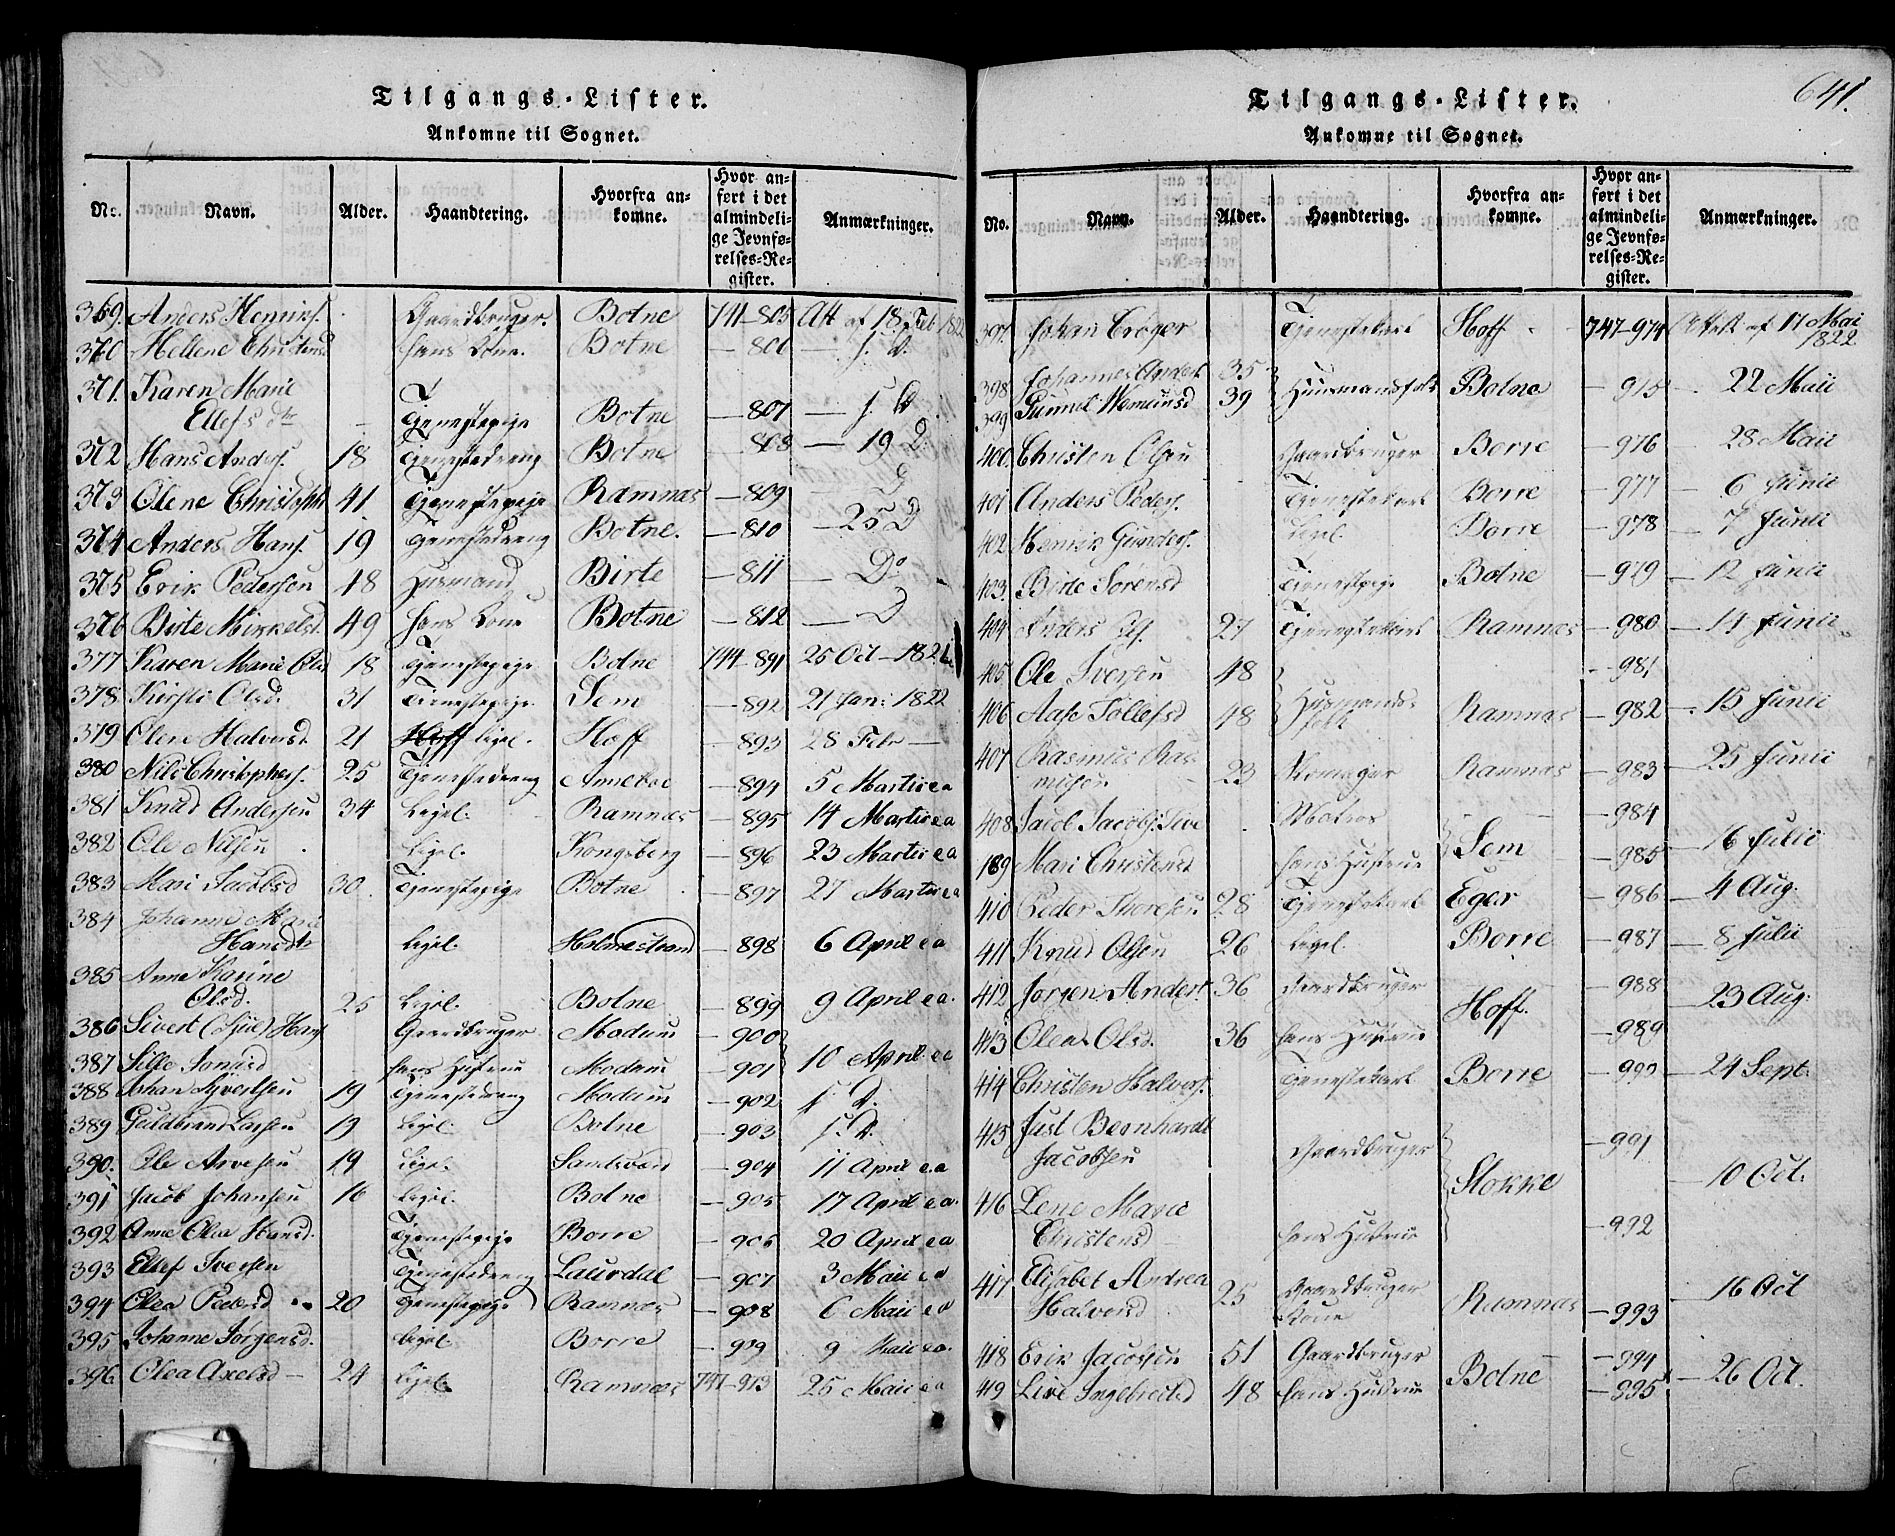 Tilgangs-Lister.
Ankomne til Sognet.
No. Navn. Alder. Haandtering. Hvorfra ankomne. Hvor anført i det almindelige Jevnførelses-Register. Anmærkninger.
369. Anders Henriks. Gaardbruger. Botne 741-805 Att af 18 Feb 1822
370 Hellene Christensd hans Kone. Botne - 806 - s. D.
371. Karen Marie
Ellefsdtr - Tjenestepige Botne - 807 - s. D
372 Hans Anders. 18 Tjenestedreng Botne - 808 - 19 D.
373 Olene Christophd 41. Tjenestepige Ramnæs - 809 - D
374 Anders Hans. 19 Tjenestedreng Botne. - 810 - 25 D
375 Erik Pedersen 48 Husmand Birte - 811 - Do
376 Birte Mikkelsd. 49 hans Kone Botne - 812 - D
377 Karen Marie Olsd 18 Tjenestepige Botne 744-891 25 Oct - 1821
378 Kirsti Olsd. 31 Tienestepige Sem - 892 21 Jan: 1822
379 Olen Halvorsd. 21 ligel. Hoff - 893 28 Febr -
380 Nils Christophers. 25 Tjenestedreng Anneboe - 894 5 Martii e a
381 Knud Andersen 34 Ligel. Ramnæs - 895 14 Martii e a
382 Ole Nilsen Ligel. Kongsberg - 896 23 Martii e a
383 Mari Jacobsd 30. Tjenestepige Botne - 897 27 Martii e a
384 Johanne Marie
Hansdtr ligel. Holmestrand - 898 6 April e a
385 Anne Karine
Olsd. 25 Ligel. Botne - 899 9 April e a.
386 Sivert (Sjul) Hans Gaardbruger Modum - 900
387 Sille hans Hustrue Modum - 901 10 April e a
388 Johan Syvertsen 19 Tjenestedreng Modum - 902 s. D.
389 Guldbrand Larsen 19 Ligel. Botne - 903 s. D.
390. Ole Arvesen 19 Ligel. - 904 11 April e.a
391 Jacob Johansen 16 Ligel. Botne - 905 17 April e a.
392 Anne Olea Hansd. Tjenestepige Borre - 906 20 April e a
393 Ellef Iversen Tjenestedreng Laurdal - 907 3 Maii e a
394 Olea Pedersd 20 Tjenestepige Ramnæs - 908 6 Maii e a
395 Johanne Jørgensd. Ligel. Borre - 909 9 Maii e a.
396. Olea Axelsd - 24 Ligel. Ramnæs 747-973 25 Maii e a
641.
Tilgangs-Lister.
Ankomne til Sognet.
No. Navn. Alder. Haandtering. Hvorfra ankomne. Hvor anført i det almindelige Jevnførelses-Register. Anmærkninger.
397. Johan Crøger Tjenestekarl Hoff - 747-974 Attest af 17 Mai 1822
398 Johannes Anders 35
399 Gunnel Hemingsd 39 Husmandsfolk Botne - 975 - 22 Maii
400. Christen Olsen Gaardbruger Borre - 976 28 Maii
401 Anders Peders. Tjenestekarl Borre - 977 - 6 Junii
402. Henrik Gunders. Ligel. Borre - 978 - 7 Junii
403. Birte Sørensd Tjenestepige Botne - 979 - 12 Junii
404 Anders 27 Tjenestekarl Ramnæs - 980 - 14 Junii
405 Ole Iversen 48 - 981
406 Aase Tollefsd 48 Husmandsfolk Ramnæs - 982 - 15 Junii
407 Rasmus Rasmusen 23 Skomager Ramnæs - 983 - 25 Junii
408 Jacob Jacobs. Matros - 984
409 Mari Christensd hans Hustrue Sem - 985 - 16 Julii
410 Peder Thoresen 28 Tjenestekarl Eger - 986 - 4 Aug:
411 Knud Olsen 26 Ligel. Borre - 987 - 8 Julii
412 Jørgen Anders. 36 Gaardbruger - 988
413 Olea Olsd. 36 hans Hustrue Hoff. - 989 - 23 Aug:
414 Christen Halvors. Tjenestekarl Borre - 990 - 24 Sept.
415 Just Bernhardt
Jacobsen Gaardbruger - 991
416 Lene Marie
Christensd - hans Hustrue Stokke - 992 - 10 Oct.
417 Elisabet Andrea
Halvorsd 25 Gaardbruger Kone Ramnæs - 993 - 16 Oct
418 Erik Jacobsen 51 Gaardbruger - 994
419 Live Ingebretsd 48 hans Hustrue Botne - 995 - 26 Oct.